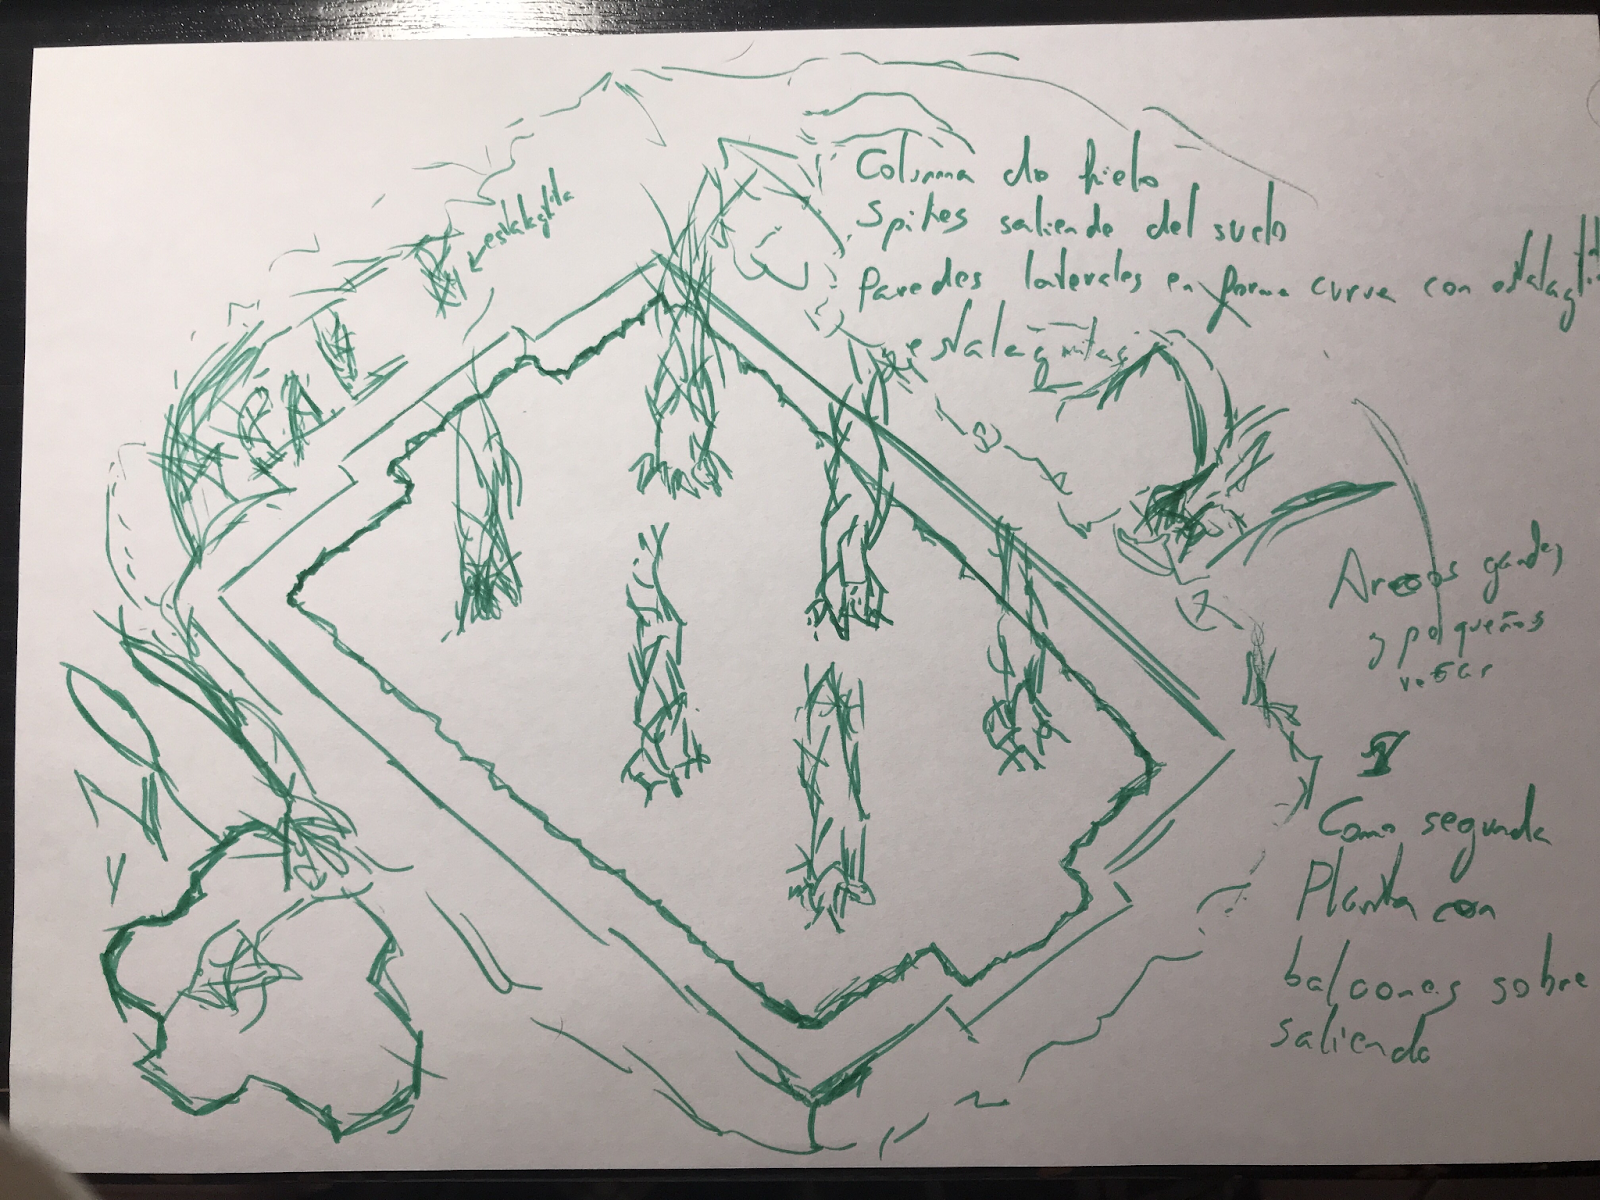 estalagtita
Columna do hielo
Spikes saliendo del suelo
Paredes laterales en forma curva con estalagtitas
estalagmitas
Arcos grandes
y pequeños
Como segunda
Planta con
balcones sobre
saliendo